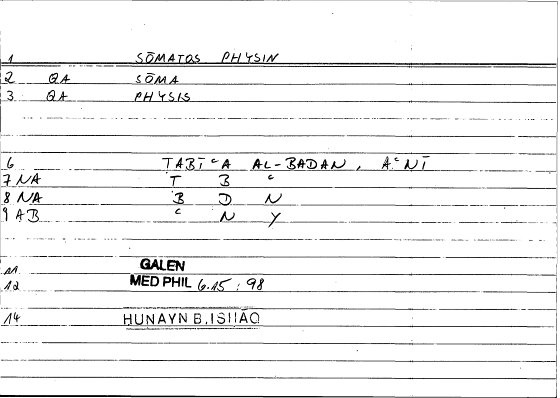 1 SŌMATOS PHYSIN
2 QA SŌMA
3 QA PHYSIS
6 TABĪᶜA AL-BADAN, AᶜNĪ
7 NA T B ᶜ
8 NA B D N
9 AB ᶜ N Y
11 GALEN
12 MED PHIL 6.15 : 98
14 HUNAYN B. ISHĀQ